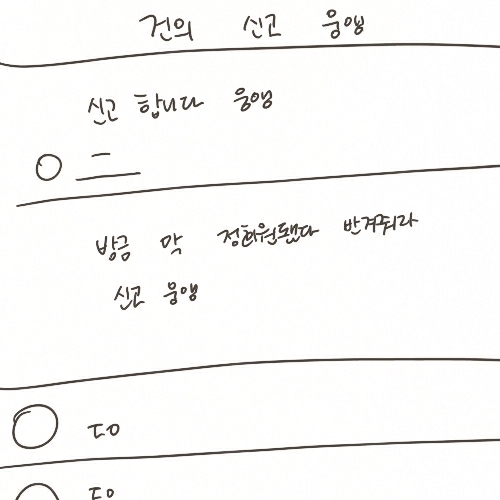 건의 신고 웅앵
신고 합니다 웅앵
방금 막 정회원됐다 반겨줘라
신고 웅앵
ㄷㅇ
ㄷㅇ